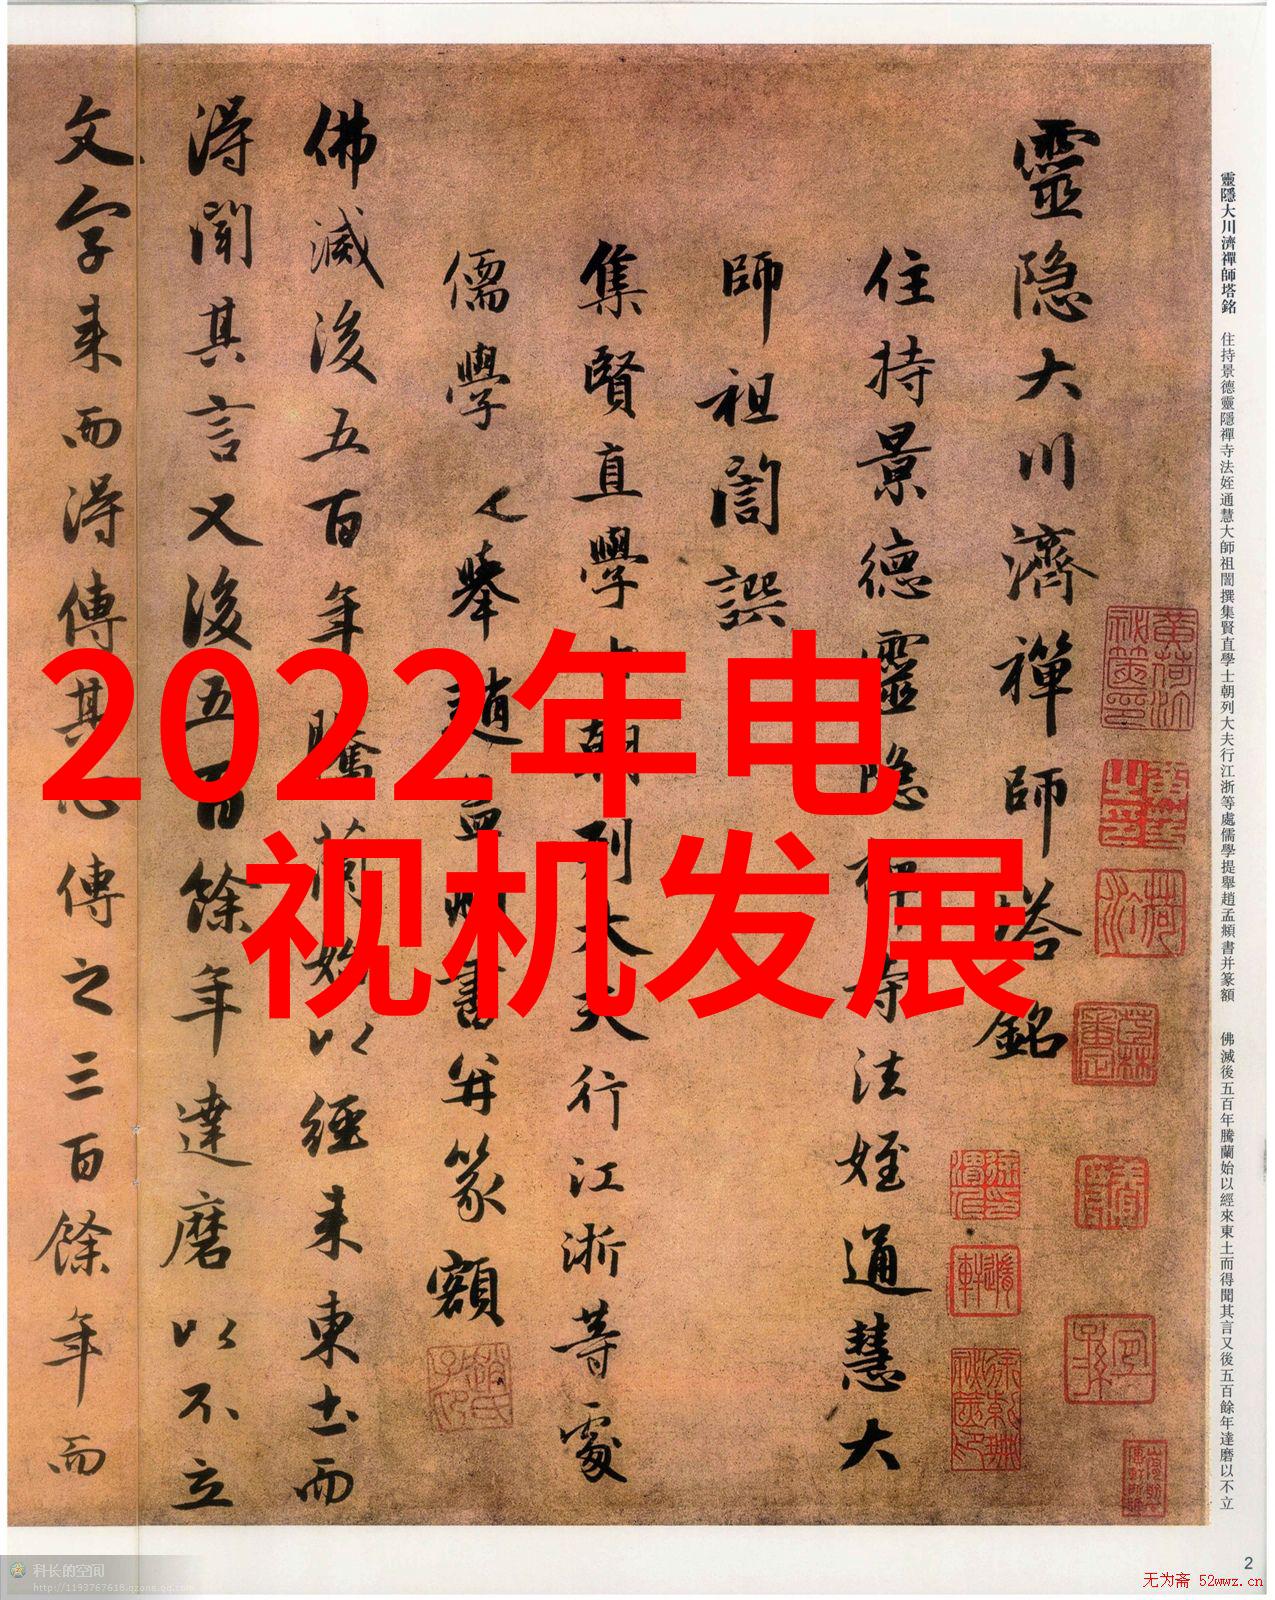 靈隐大川濟禪師塔銘
住持景德靈隐禪寺法姪通慧大
師祖誾譔
集賢直學士朝列大夫行江浙等處
儒學提舉趙孟頫書并篆額
佛滅後五百年騰蘭始以經来東土而
得聞其言又後五百餘年達磨以不立
文字来而得傳其心傳之三百餘年而
2022年电
视机发展
靈隱大川濟禪師塔銘 住持景德靈隱禪寺法姪通慧大師祖誾撰集賢直學士朝列大夫行江浙等處儒學提舉趙孟頫書并篆額 佛滅後五百年騰蘭始以經來東土而得聞其言又後五百餘年達磨以不立
2
科长的空间
http://1193767618.qzone.qq.com
无为斋 52wwz.cn